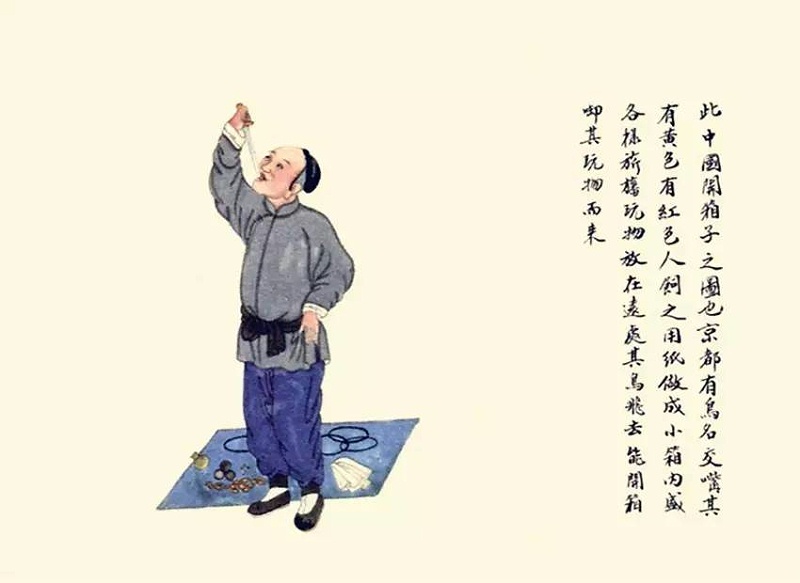 此中國開箱子之圖也京都有鳥名交嘴其
有黃色有紅色人飼之用紙做成小箱内盛
各樣旂旛玩物放在遠處其鳥飛去能開箱
啣其玩物而来